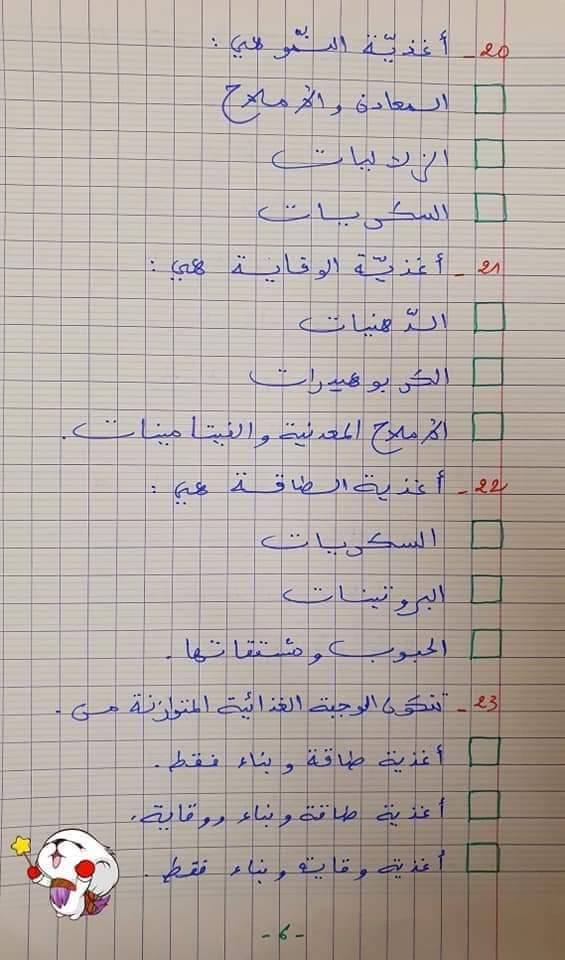 20 - أغذيّة النموّ هي :
المعادن والأملاح
الزلاليات
السكريات
21 - أغذيّة الوقاية هي :
الدّهنيات
الكربوهيدرات
الأملاح المعدنية والفيتامينات .
22 - أغذية الطاقة هي :
السكريات
البروتينات
الحبوب ومشتقاتها .
23 - تتكون الوجبة الغذائية المتوازنة من .
أغذية طاقة وبناء فقط .
أغذية طاقة وبناء ووقاية .
أغذية وقاية وبناء فقط .
- 6 -